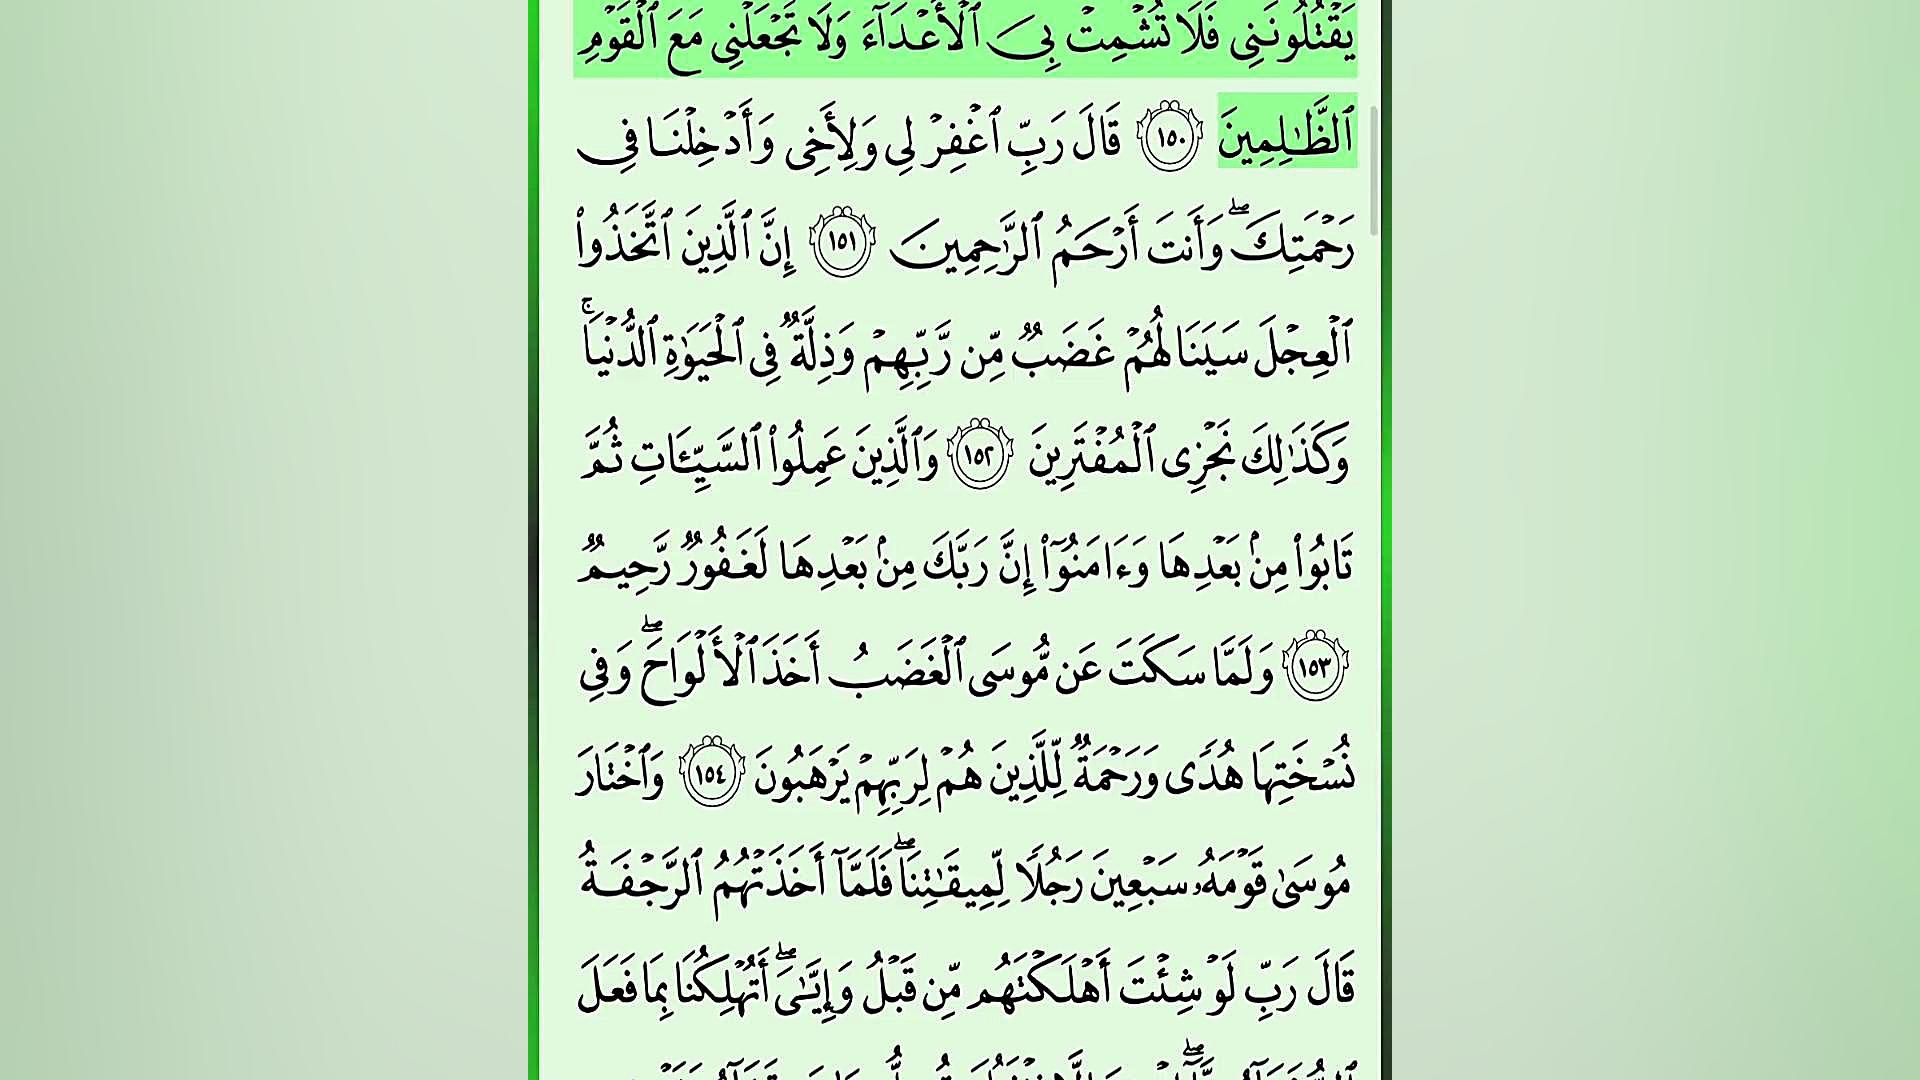 يَقْتُلُونَنِى فَلَا تُشْمِتْ بِىَ ٱلْأَعْدَآءَ وَلَا تَجْعَلْنِى مَعَ ٱلْقَوْمِ
ٱلظَّـٰلِمِينَ ١٥٠ قَالَ رَبِّ ٱغْفِرْ لِى وَلِأَخِى وَأَدْخِلْنَا فِى
رَحْمَتِكَ ۖ وَأَنتَ أَرْحَمُ ٱلرَّٰحِمِينَ ١٥١ إِنَّ ٱلَّذِينَ ٱتَّخَذُوا۟
ٱلْعِجْلَ سَيَنَالُهُمْ غَضَبٌ مِّن رَّبِّهِمْ وَذِلَّةٌ فِى ٱلْحَيَوٰةِ ٱلدُّنْيَا ۚ
وَكَذَٰلِكَ نَجْزِى ٱلْمُفْتَرِينَ ١٥٢ وَٱلَّذِينَ عَمِلُوا۟ ٱلسَّيِّـَٔاتِ ثُمَّ
تَابُوا۟ مِنۢ بَعْدِهَا وَءَامَنُوٓا۟ إِنَّ رَبَّكَ مِنۢ بَعْدِهَا لَغَفُورٌ رَّحِيمٌ
١٥٣ وَلَمَّا سَكَتَ عَن مُّوسَى ٱلْغَضَبُ أَخَذَ ٱلْأَلْوَاحَ ۖ وَفِى
نُسْخَتِهَا هُدًى وَرَحْمَةٌ لِّلَّذِينَ هُمْ لِرَبِّهِمْ يَرْهَبُونَ ١٥٤ وَٱخْتَارَ
مُوسَىٰ قَوْمَهُۥ سَبْعِينَ رَجُلًا لِّمِيقَـٰتِنَا ۖ فَلَمَّآ أَخَذَتْهُمُ ٱلرَّجْفَةُ
قَالَ رَبِّ لَوْ شِئْتَ أَهْلَكْتَهُم مِّن قَبْلُ وَإِيَّـٰىَ ۖ أَتُهْلِكُنَا بِمَا فَعَلَ